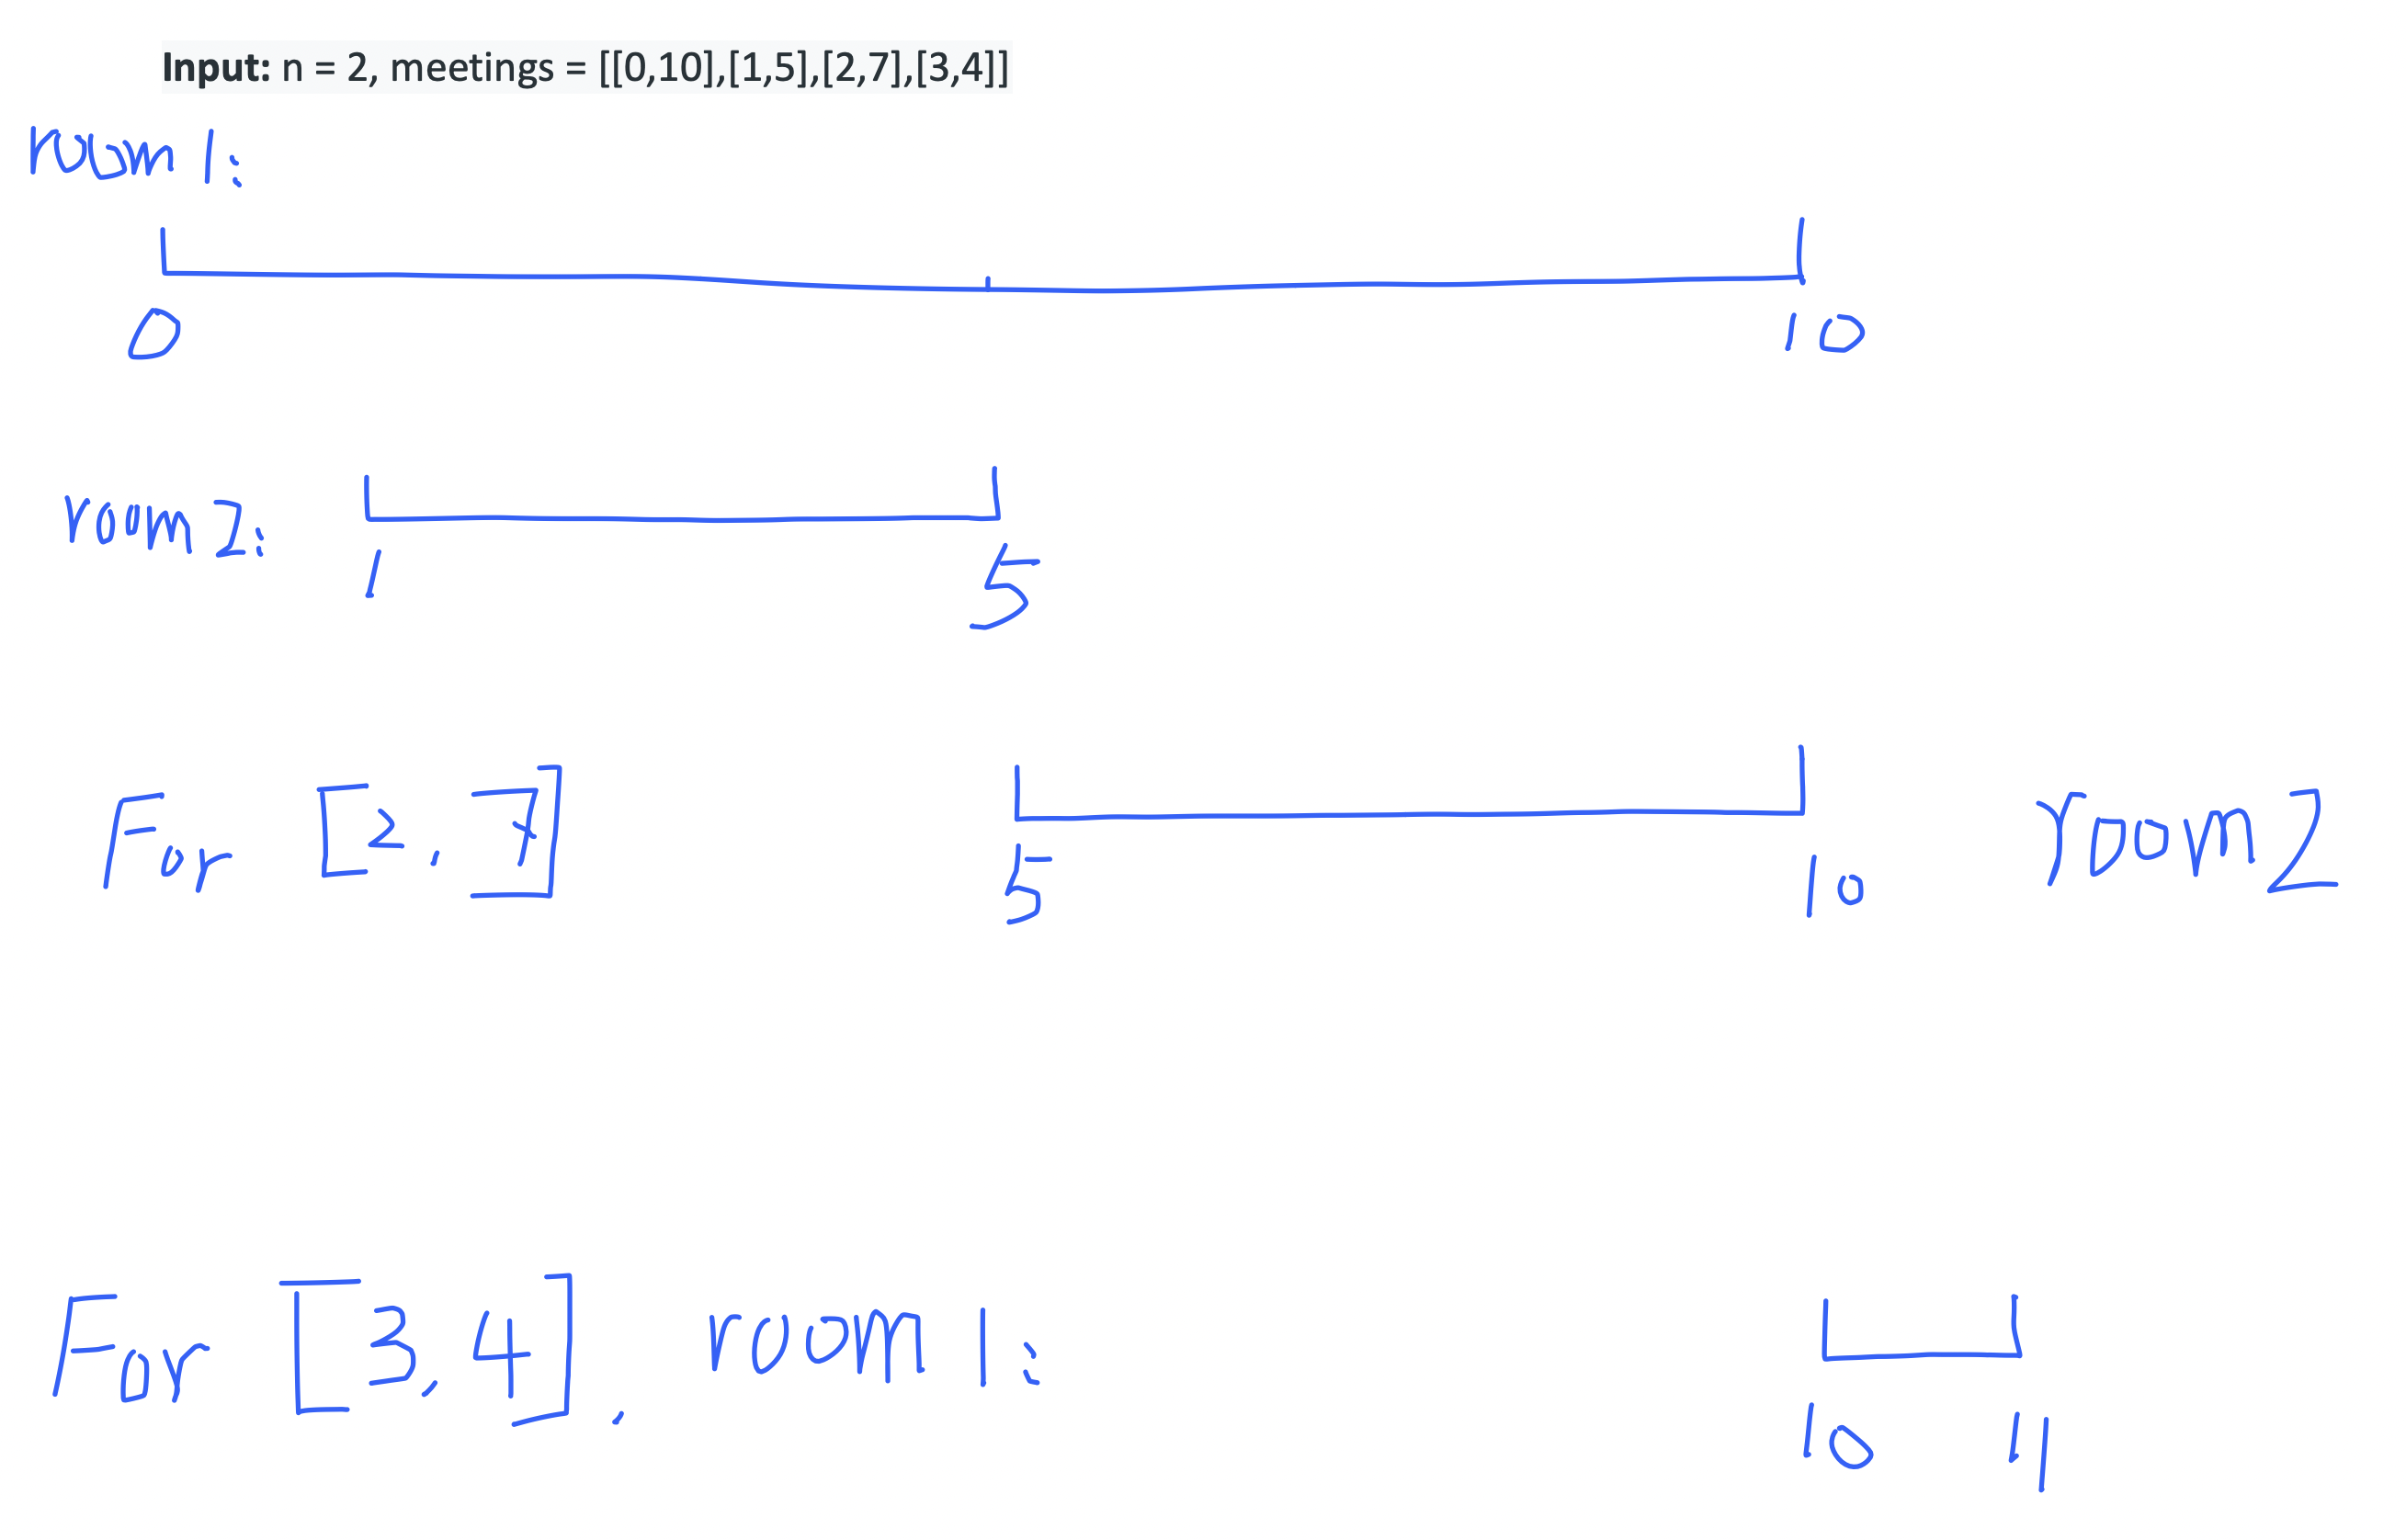 Input: n = 2, meetings = [[0,10],[1,5],[2,7],[3,4]]
room 1:
0 10
room 2:
1 5
For [2, 7] room 2
5 10
For [3,4], room 1:
10 11